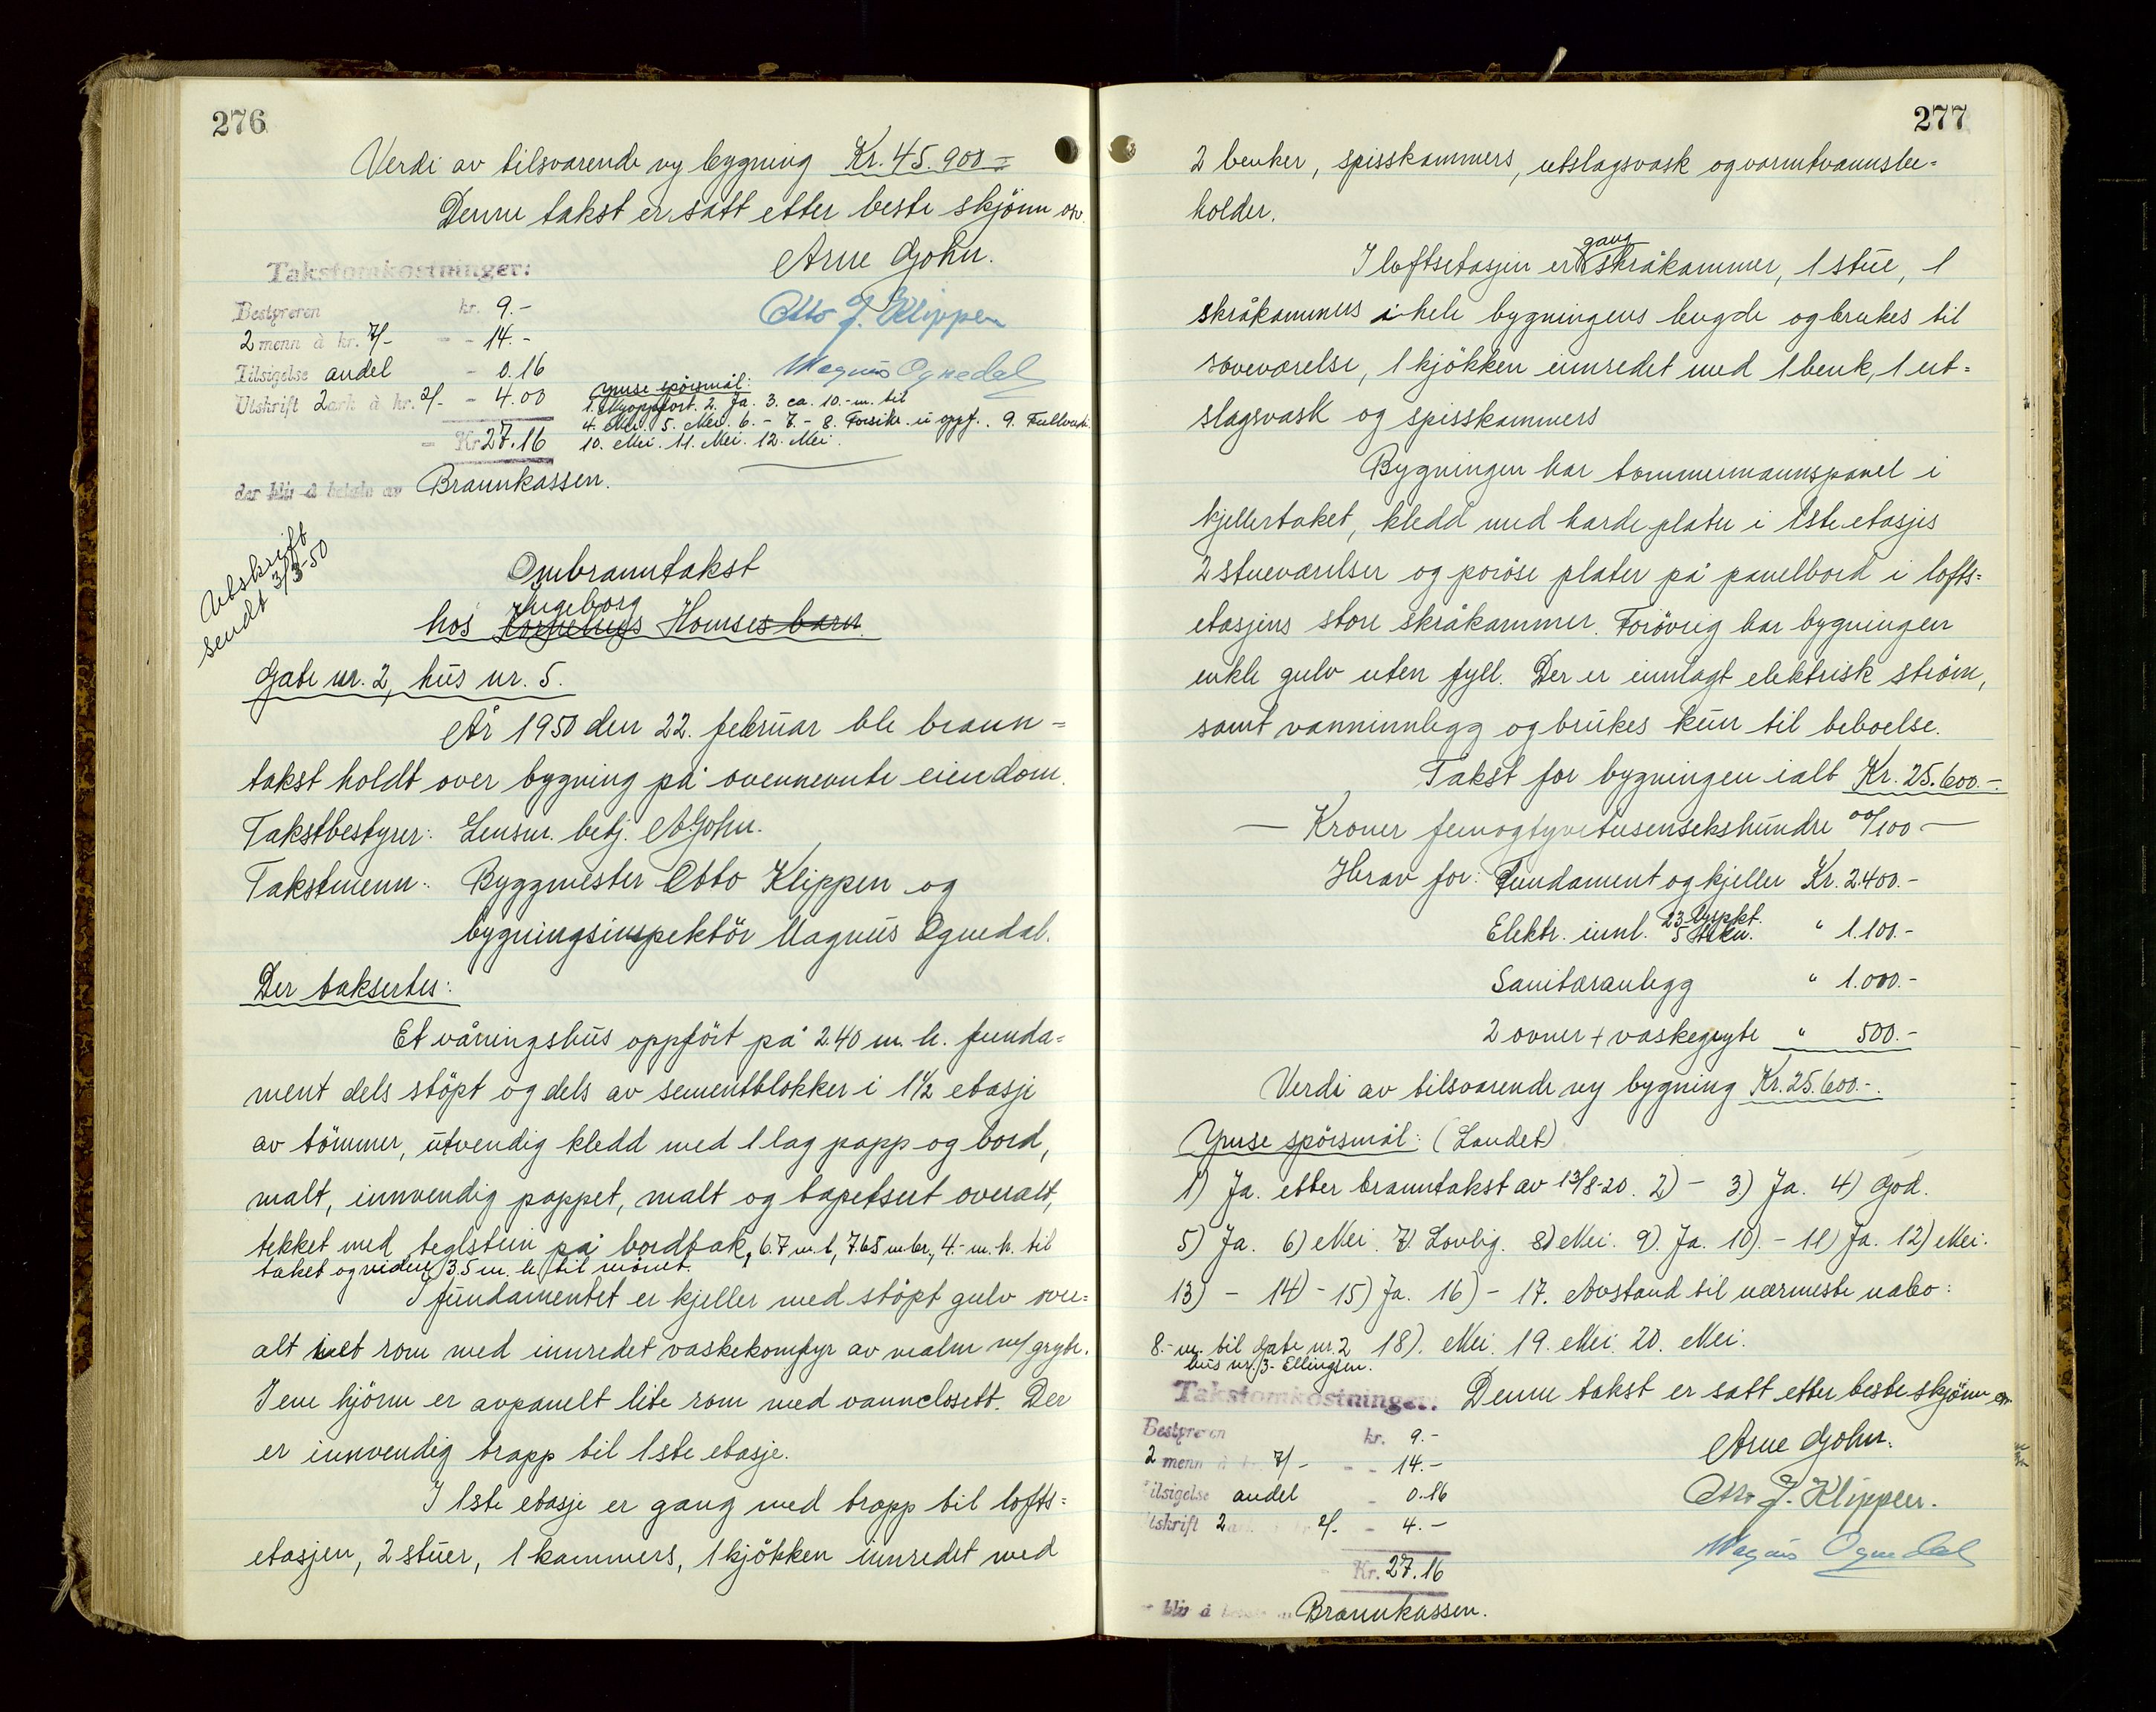 276
Verdi av tilsvarende ny bygning Kr. 45.900=
Denne takst er satt etter beste skjönn osv.
Arne Gjohn.
Takstomkostninger:
Otto J. Klippen
Bestyreren kr. 9.-
2 menn à kr. 7/- - - 14.-
Magnus Ognedal
Tilsigelse andel - 0.16
Utskrift 2 ark à kr. 2/- - 4.00
= Kr 27.16
Ymse spörsmål:
1. Nyoppfört. 2. Ja. 3. ca. 10.-m. til
4. Nei. 5. Nei. 6. - 7. - 8. Forsikr. u. oppf. . 9. Fullverdi.
10. Nei. 11. Nei. 12. Nei.
der blir å betale av Brannkassen.
Utskrift
sendt 3/3-50
Ombranntakst
Ingeborg
hos Kornelius Homses barn.
Gate nr. 2, hus nr. 5.
År 1950 den 22. februar ble brann=
takst holdt over bygning på ovennevnte eiendom.
Takstbestyrer: Lensm. betj. A Gjohn.
Takstmenn: Byggmester Otto Klippen og
bygningsinspektör Magnus Ognedal.
Der taksertes:
Et våningshus oppfört på 2.40 m. h. funda=
ment dels stöpt og dels av sementblokker i 1½ etasje
av tömmer, utvendig kledd med 1 lag papp og bord,
malt, innvendig pappet, malt og tapetsert overalt,
tekket med teglstein på bordtak, 6.7 m. l, 7.65 m br., 4.- m. h. til
taket og videre 3.5 m. h. til mönet.
I fundamentet er kjeller med stöpt gulv over=
alt i et rom med innredet vaskekomfyr av malm m/ gryte.
I ene hjörne er avpanelt lite rom med vannclosett. Der
er innvendig trapp til 1ste etasje.
I 1ste etasje er gang med trapp til lofts=
etasjen, 2 stuer, 1 kammers, 1 kjökken innredet med
277
2 benker, spisskammers, utslagsvask og varmtvannsbe=
holder.
gang
I loftsetasjen er skråkammer, 1 stue, 1
skråkammers i hele bygningens lengde og brukes til
soveværelse, 1 kjökken innredet med 1 benk, 1 ut=
slagsvask og spisskammers
Bygningen har tommermannspanel i
kjellertaket, kledd med harde plater i 1ste etasjes
2 stueværelser og poröse plater på panelbord i lofts=
etasjens store skråkammer. Forövrig har bygningen
enkle gulv uten fyll. Der er innlagt elektrisk ström,
samt vanninnlegg og brukes kun til beboelse.
Takst for bygningen ialt Kr. 25.600.-.
— Kroner femogtyvetusensekshundre 00/100 —
Herav for: Fundament og kjeller Kr. 2.400.-
Elektr. innl. 23 lyspkt. 5 stikk. " 1.100.-
Sanitæranlegg " 1.000.-
2 ovner + vaskegryte " 500.-
Verdi av tilsvarende ny bygning Kr. 25.600.-.
Ymse spörsmål: (Landet)
1) Ja. etter branntakst av 13/8-20. 2) - 3) Ja. 4) God.
5) Ja. 6) Nei. 7. Lovlig. 8) Nei. 9). Ja. 10). - 11) Ja. 12) Nei.
13) - 14) - 15) Ja. 16) - 17. Avstand til nærmeste nabo:
8.- m. til Gate nr. 2 18). Nei. 19. Nei. 20. Nei.
hus nr. 3- Ellingsen.
Takstomkostninger: Denne takst er satt etter beste skjönn osv.
Bestyreren kr. 9.-
Arne Gjohn.
2 menn à kr. 7/- - - 14.-
Tilsigelse andel - 0.16
Otto J. Klippen.
Utskrift 2 ark à kr 2/- - 4.-
Magnus Ognedal
Kr. 27.16
blir å betale av Brannkassen.